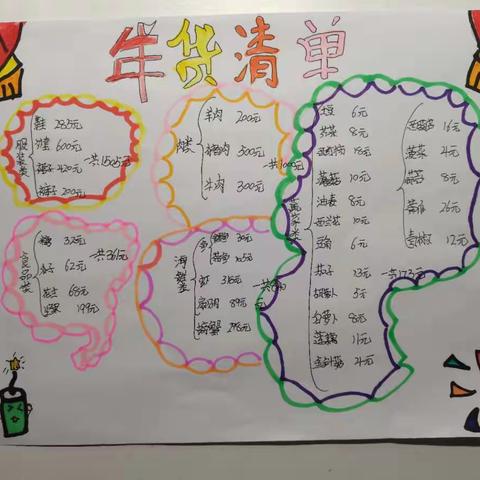 年货清单
服装类
鞋 285元
600元
裤子 420元
200元
一共1505元
肉类
羊肉 200元
猪肉 300元
牛肉 300元
食品类
糖 32元
瓜子 62元
花生 68元
坚果 199元
一共361元
海鲜类
鱼
30元
虾 315元
89元
螃蟹 298元
蔬菜类
土豆 6元
8元
18元
蘑菇 10元
油麦 8元
西兰花 10元
豆角 6元
茄子 13元
胡萝卜 5元
白萝卜 8元
莲藕 11元
金针菇 4元
西红柿 16元
菠菜 4元
8元
26元
青椒 12元
一共173元